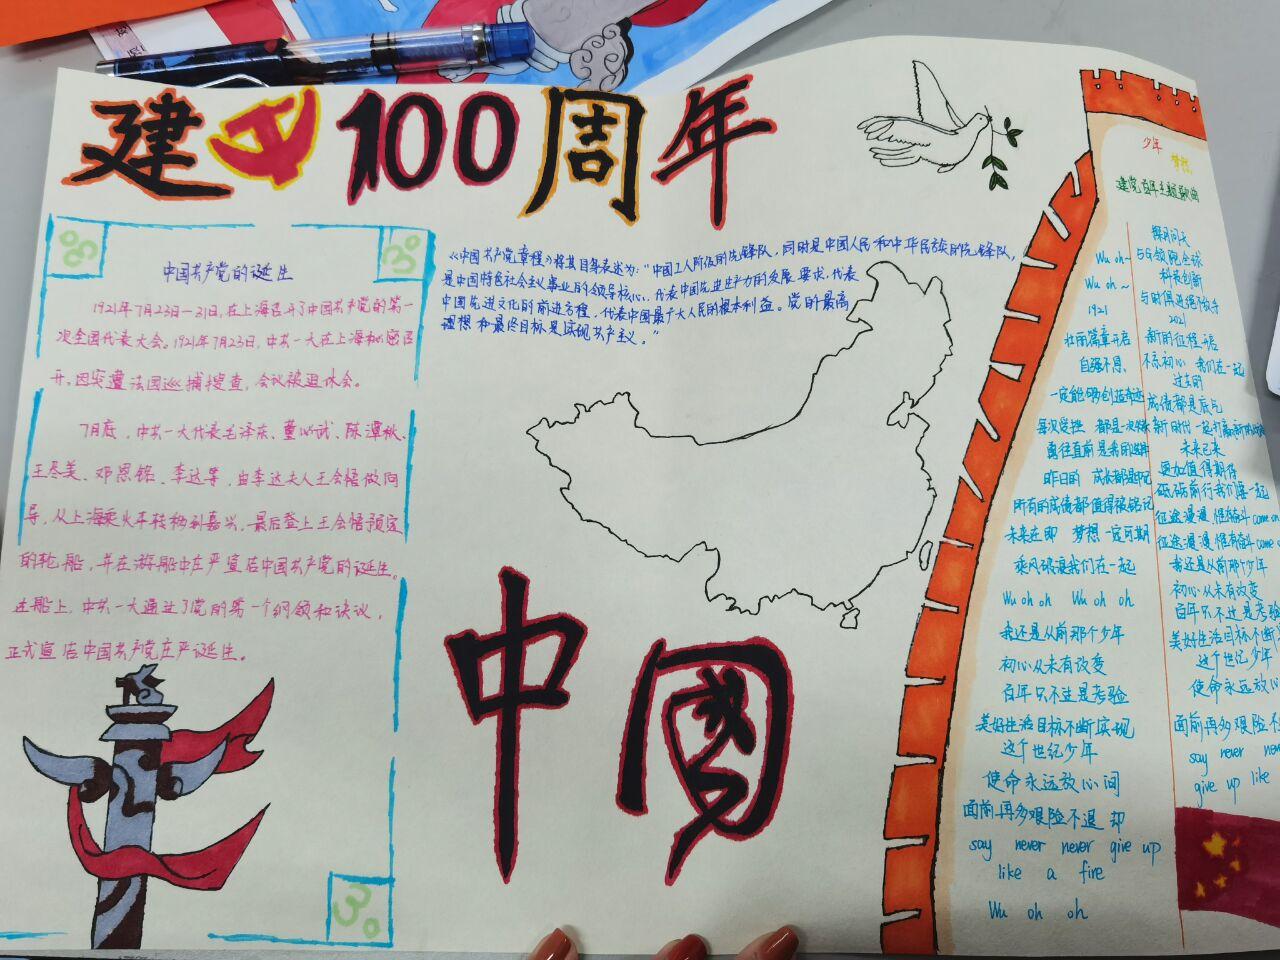 建 100周年
中国共产党的诞生
1921年7月23日—31日,在上海召开了中国共产党的第一
次全国代表大会。1921年7月23日,中共一大在上海秘密召
开。因突遭法国巡捕搜查,会议被迫休会。
7月底,中共一大代表毛泽东、董必武、陈潭秋、
王尽美、邓恩铭、李达等,由李达夫人王会悟做向
导,从上海乘火车转移到嘉兴。最后登上王会悟预定
的轮船,并在游船中庄严宣告中国共产党的诞生。
这船上,中共一大通过了党的第一个纲领和决议,
正式宣告中国共产党庄严诞生。
《中国共产党章程》将其自身表述为:“中国工人阶级的先锋队,同时是中国人民和中华民族的先锋队,
是中国特色社会主义事业的领导核心,代表中国先进生产力的发展要求,代表
中国先进文化的前进方程,代表中国最广大人民的根本利益。党的最高
理想和最终目标是实现共产主义。”
中國
少年
梦想
建党百年主题歌曲
Wu oh~
Wu oh~
1921
壮丽篇章开启
自强不息、
一定能够创造奇迹
每次受挫 都是一次
勇往直前是我的选择
昨日的 成长都是印记
所有的成绩都值得被铭记
未来在即 梦想一定可期
乘风破浪我们在一起
Wu oh oh Wu oh oh
我还是从前那个少年
初心从未有改变
百年只不过是考验
美好生活目标不断实现
这个世纪少年
使命永远放心间
面前再多艰险不退却
say never never give up
like a fire
Wu oh oh
探月问天
5G领跑全球
科技创新
与时俱进强阶手
2021
新的征程开启
不忘初心 我们在一起
过去的
成绩都是底气
新时代一起打赢新的
未来已来
更加值得期待
砥砺前行我们要一起
征途漫漫 惟有奋斗 come on
征途漫漫 惟有奋斗 come
我还是从前那个少年
初心从未有改变
百年只不过是考验
美好生活目标不断
这个世纪少年
使命永远放心
面前再多艰险不
say never never
give up like